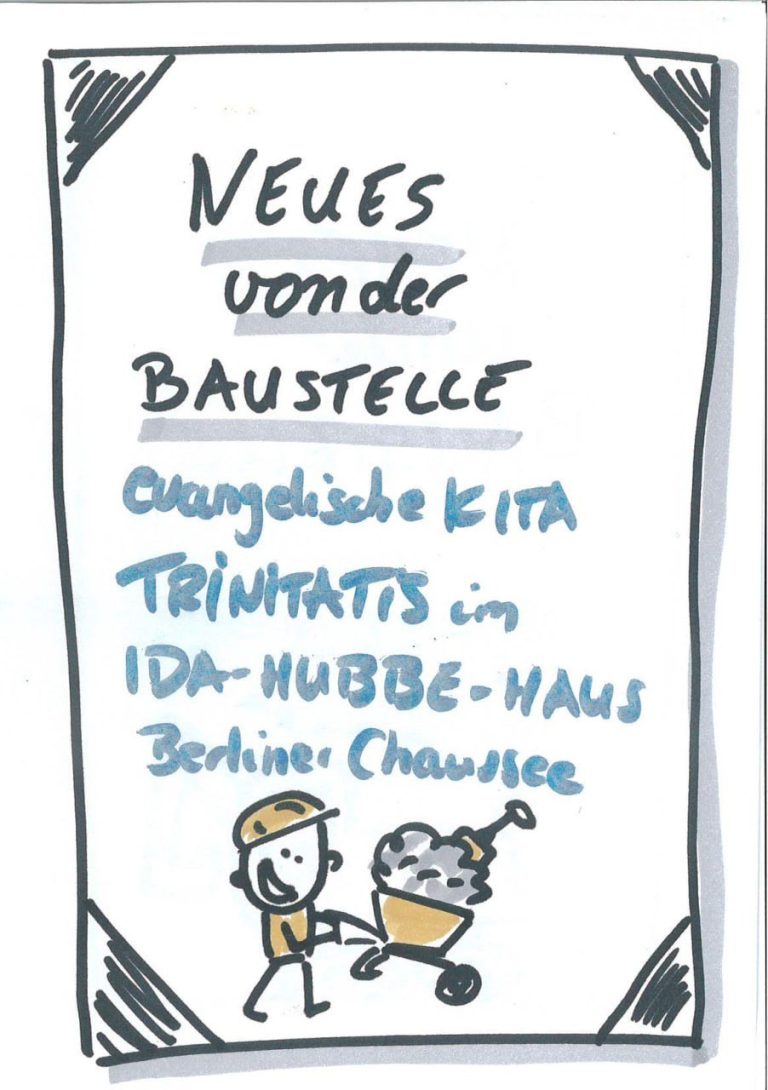 NEUES
von der
BAUSTELLE
evangelische KITA
TRINITATIS im
IDA-HUBBE-HAUS
Berliner Chaussee